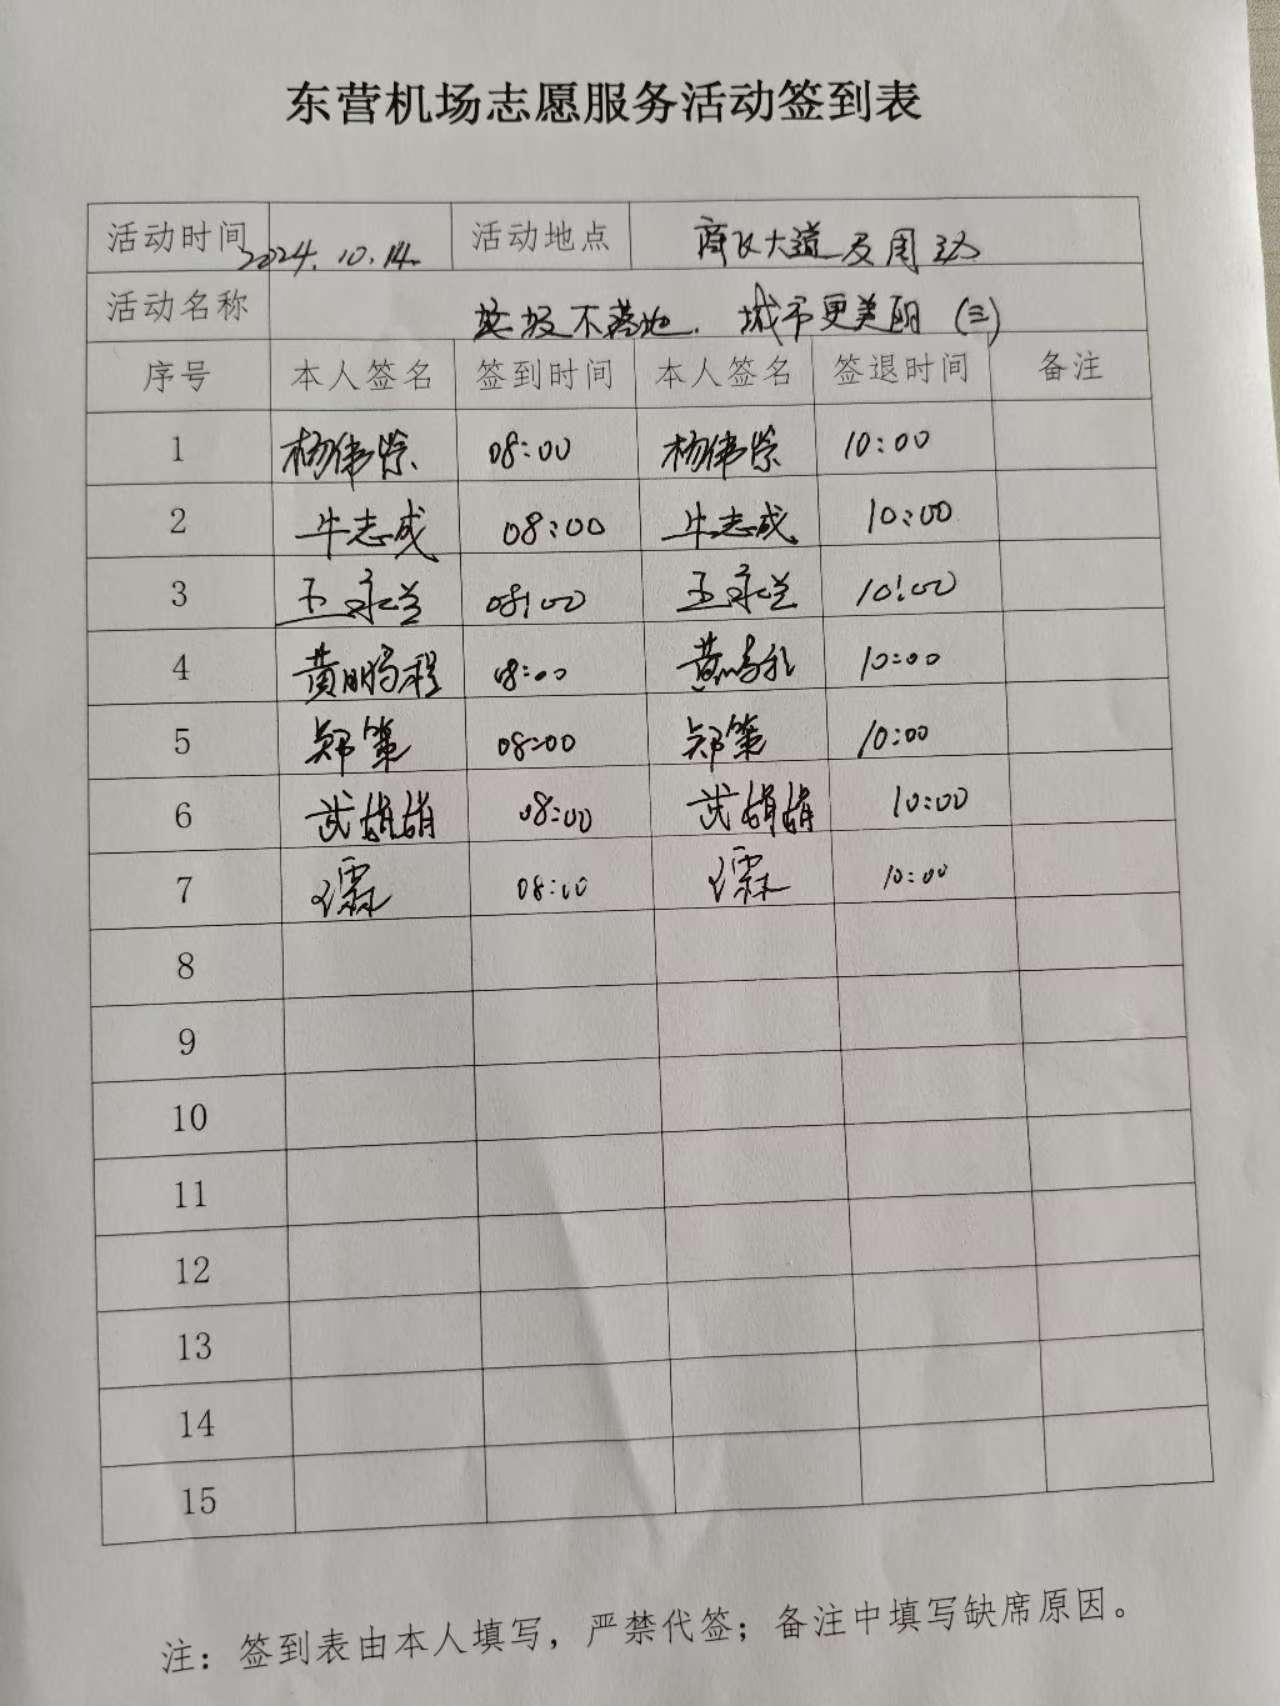 东营机场志愿服务活动签到表
活动时间 2024.10.14. 活动地点 商飞大道及周边
活动名称 垃圾不落地.城市更美丽(三)
序号 本人签名 签到时间 本人签名 签退时间 备注
1 杨伟 08:00 杨伟 10:00
2 牛志成 08:00 牛志成 10:00
3 王永兰 08:00 王永兰 10:00
4 黄鹏程 08:00 黄鹏程 10:00
5 郑策 08:00 郑策 10:00
6 武娟娟 08:00 武娟娟 10:00
7 08:00 10:00
8
9
10
11
12
13
14
15
注：签到表由本人填写，严禁代签；备注中填写缺席原因。